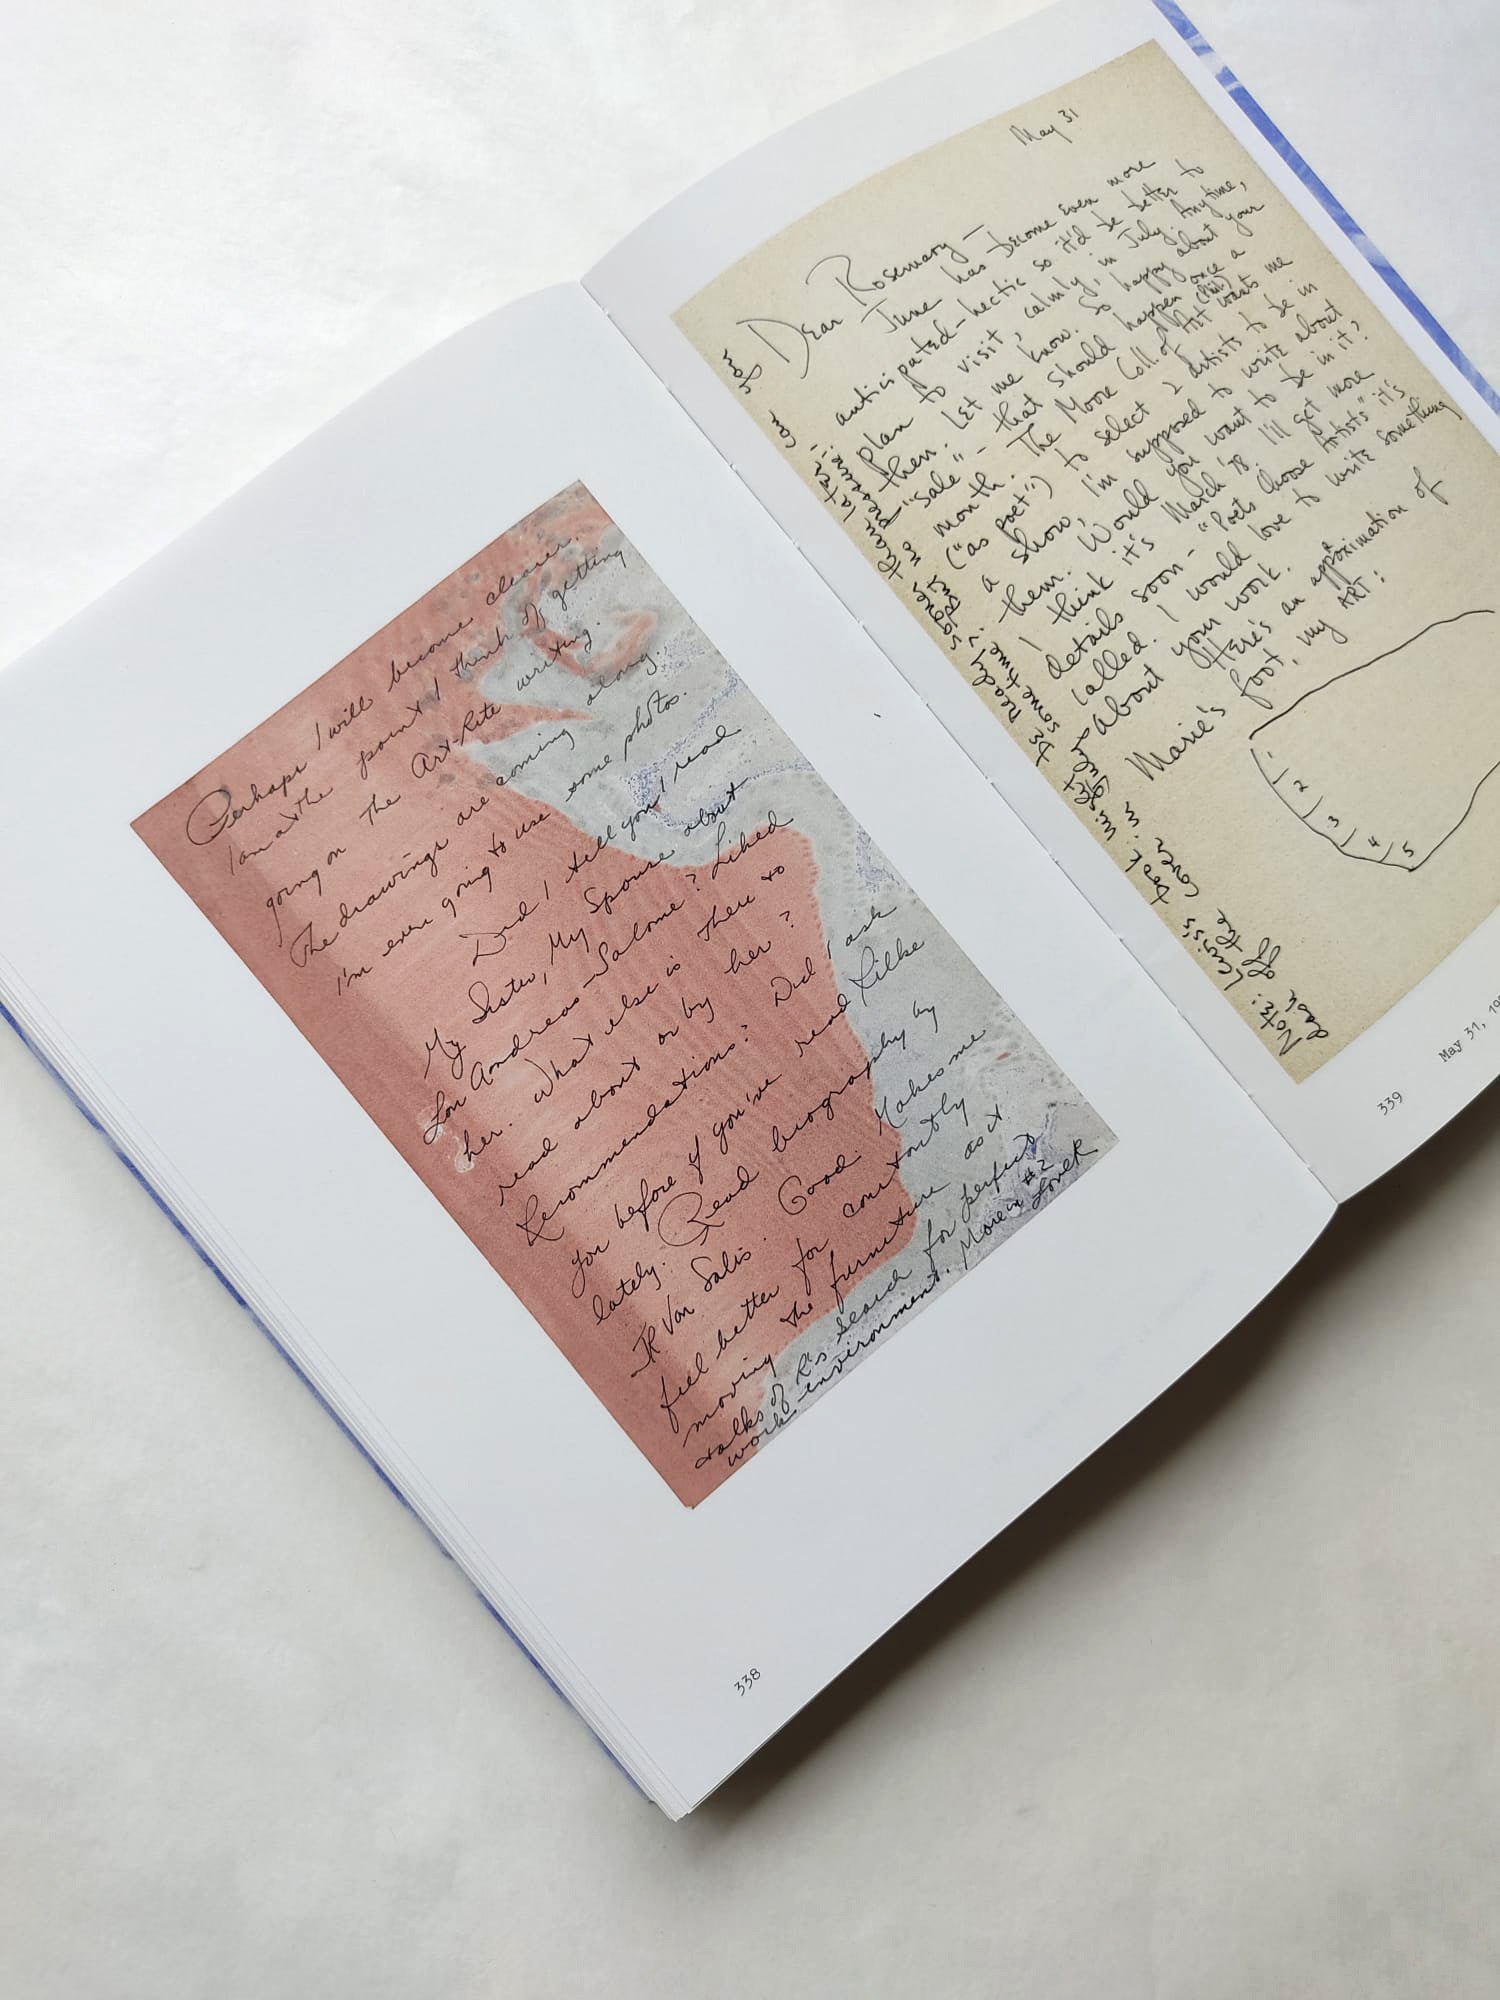 Perhaps I will become clearer.
I am at the point I think of getting
going on the Art-Rite writing.
The drawings are coming along.
I'm even going to use some photos.
Did I tell you I read
My Sister, My Spouse about
Lou Andreas-Salome? Liked
her. What else is there to
read about or by her?
Recommendations? Did I ask
you before if you've read Rilke
lately. Read biography by
JR Von Salis. Good. Makes me
feel better for constantly
moving the furniture as it
talks of R's search for perfect
work environment. More in #2
Love R
338
May 31
Dear Rosemary—
June has become even more
anticipated-hectic so it'd be better to
plan to visit, calmly, in July. Anytime,
then. Let me know. So happy about your
"sale" — that should happen once a
month. The Moore Coll. of Art (Phil) wants me
("as poet") to select 2 artists to be in
a show, I'm supposed to write about
them. Would you want to be in it?
I think it's March '78 I'll get more
details soon — "Poets Choose Artists" it's
called. I would love to write something
about your work.
Here's an approximation of
Marie's foot, my ART:
1 2 3 4 5
Note: Lewis's book might
dash off the cover in
July
be ready sooner than later. can
sometime
339
May 31, 19